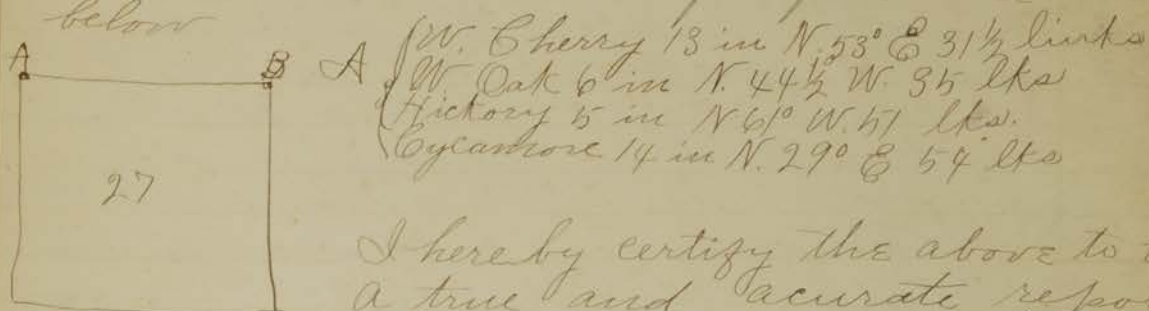 below
A B A W. Cherry 13 in N. 53° E 31½ links
W. Oak 6 in N. 44½ W. 35 lks
Hickory 5 in N 61° W. 51 lks.
Cycamore 14 in N. 29° E 54 lks
27
I here by certify the above to
a true and acurate repo